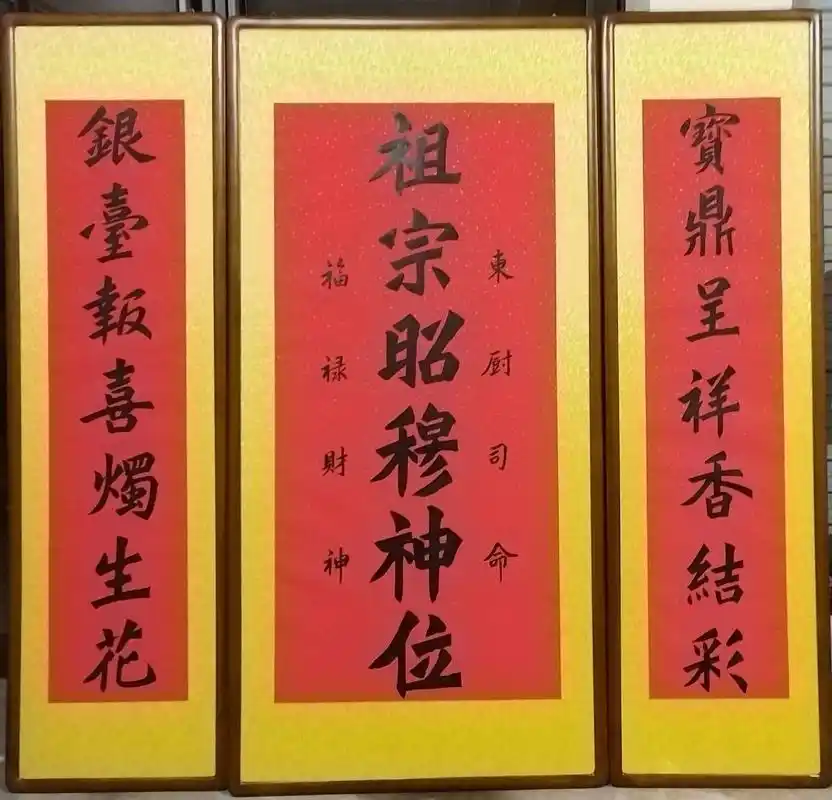 寶鼎呈祥香結彩
東厨司命
祖宗昭穆神位
福禄財神
銀臺報喜燭生花